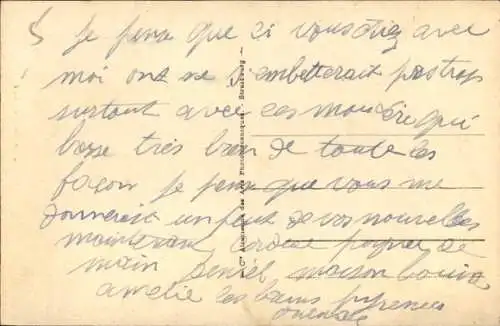 je pense que si vous étiez avec
moi ont ne s'embetterait pas trop
surtout avec ces
basse très bien de toute les
façon je pense que vous me
donnerais un peut de vos nouvelles
maintenant cordial poignee de
main maison
amelie les bains pyrenees
Cie Alsacienne des Arts Photomécaniques - Strasbourg